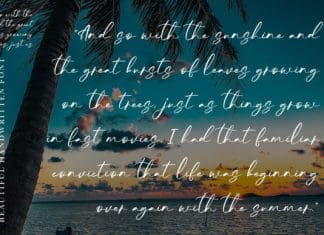 "And so with the sunshine and
the great bursts of leaves growing
on the trees, just as things grow
in fast movies, I had that familiar
conviction that life was beginning
over again with the summer."
so with the
d the great
s growing
es, just as
BEAUTIFUL HANDWRITTEN FONT